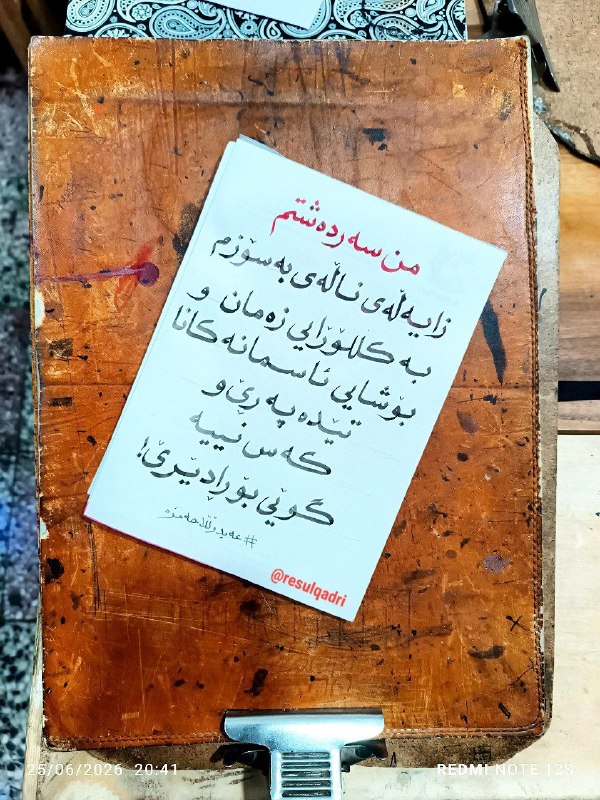 من سەردەشتم
زایەڵەی ناڵەی بەسۆزم
بە کللۆرایی زەمان و
بۆشایی ئاسمانەکانا
تێدەپەڕێ و
کەس نییە
گوێی بۆ ڕادێرێ!
#عەبدوڵڵاحەمزە
@resulqadri
25/06/2026 20:41
REDMI NOTE 12S